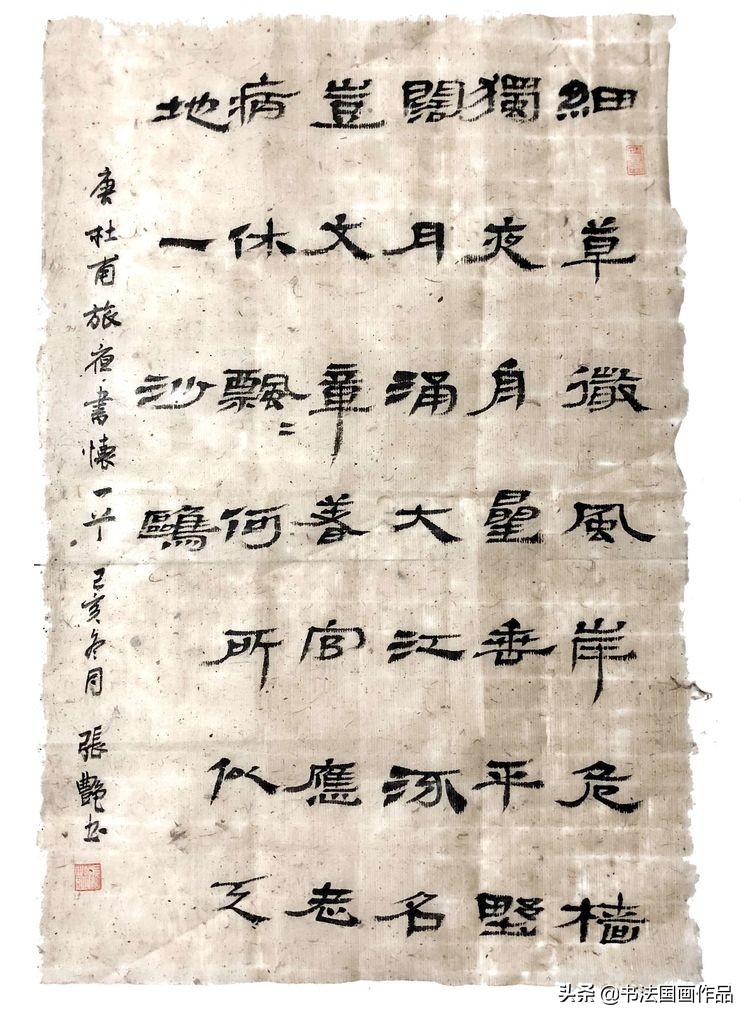 細草微風岸危檣
獨夜舟星垂平野
闊月涌大江流名
豈文章著官應老
病休飄〻何所似天
地一沙鷗
唐杜甫旅夜書懷一首 己亥冬月 張艷書
头条 @书法国画作品